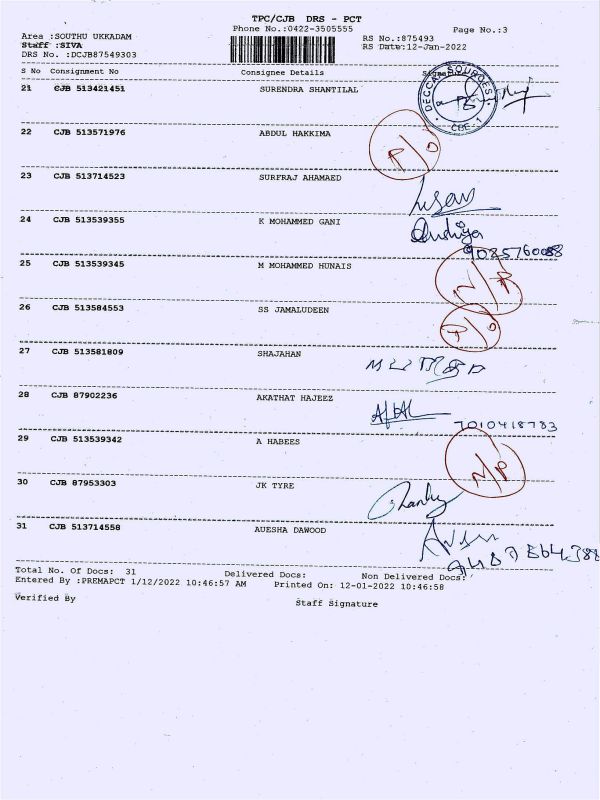 TPC/CJB DRS - PCT
Phone No.:0422-3505555
Page No.:3
Area :SOUTHU UKKADAM
RS No.:875493
Staff :SIVA
RS Date:12-Jan-2022
DRS No. :DCJB87549303
S No Consignment No Consignee Details
21 CJB 513421451 SURENDRA SHANTILAL
DECCAN SOURCES
CBE-1
22 CJB 513571976 ABDUL HAKKIMA
23 CJB 513714523 SURFRAJ AHAMAED
24 CJB 513539355 K MOHAMMED GANI
25 CJB 513539345 M MOHAMMED HUNAIS
N/P
26 CJB 513584553 SS JAMALUDEEN
27 CJB 513581809 SHAJAHAN
28 CJB 87902236 AKATHAT HAJEEZ
7010418783
29 CJB 513539342 A HABEES
N/P
30 CJB 87953303 JK TYRE
31 CJB 513714558 AUESHA DAWOOD
Total No. Of Docs: 31 Delivered Docs: Non Delivered Docs:
Entered By :PREMAPCT 1/12/2022 10:46:57 AM Printed On: 12-01-2022 10:46:58
Verified By Staff Signature